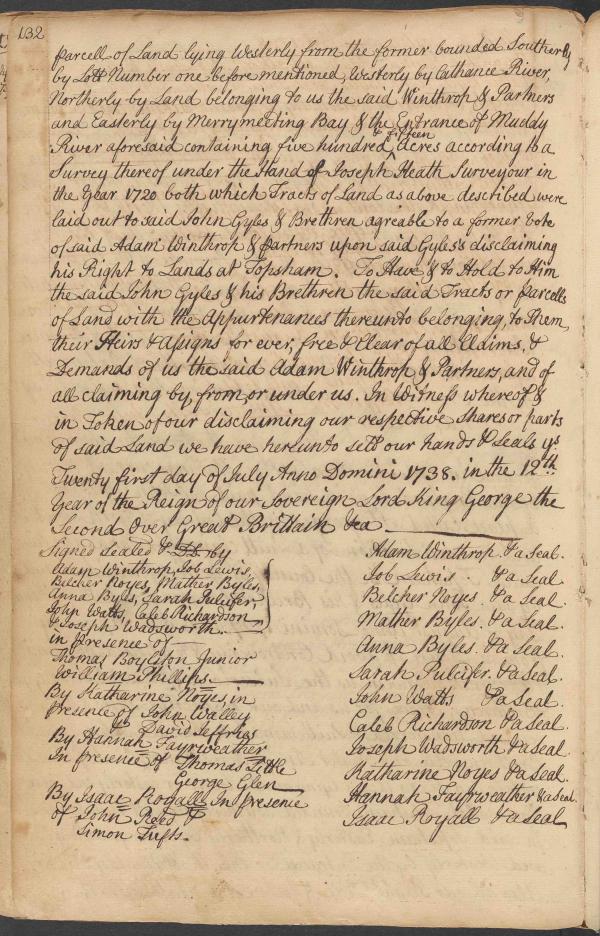 132
parcell of Land lying Westerly from the former bounded Southerly
by Lott Number one before mentioned, Westerly by Cathance River,
Northerly by Land belonging to us the said Winthrop & Partners
and Easterly by Merrymeeting Bay & the Entrance of Muddy
& fifteen
River aforesaid containing five hundred ^ Acres according to a
Survey thereof under the Hand of Joseph Heath Surveyour in
the Year 1720 both which Tracts of Land as above described were
laid out to said John Gyles & Brethren agreable to a former Vote
of said Adam Winthrop & partners upon said Gyles's disclaiming
his Right to Lands at Topsham. To Have & to Hold to Him
the said John Gyles & his Brethren the said Tracts or parcells
of Land with the Appurtenances thereunto belonging, to Them,
their Heirs & Assigns for ever, free & Clear of all Claims, &
Demands of us the said Adam Winthrop & Partners, and of
all claiming by, from, or under us. In Witness whereof &
in Token of our disclaiming our respective shares or parts
of said Land we have hereunto sett our hands & Seals ys
Twenty first day of July Anno Domini 1738. in the 12th
Year of the Reign of our Sovereign Lord King George the
Second Over Great Brittain &ca.
Signed Sealed & DD by
Adam Winthrop, Job Lewis,
Belcher Noyes, Mather Byles,
Anna Byles, Sarah Pulcifer,
John Watts, Caleb Richardson,
& Joseph Wadsworth
in presence of
Thomas Boylston Junior
William Phillips
By Katharine Noyes, in
presence of John Walley
David Jeffries
By Hannah Fayrweather
In presence of Thomas Little
George Glen
By Isaac Royall In presence
of John Reed &
Simon Tufts.
Adam Winthrop. & a Seal.
Job Lewis. & a Seal
Belcher Noyes. & a Seal.
Mather Byles. & a Seal.
Anna Byles. & a Seal.
Sarah Pulcifer. & a Seal.
John Watts & a Seal.
Caleb Richardson & a Seal.
Joseph Wadsworth & a Seal
Katharine Noyes & a Seal.
Hannah Fayrweather & a Seal
Isaac Royall & a Seal